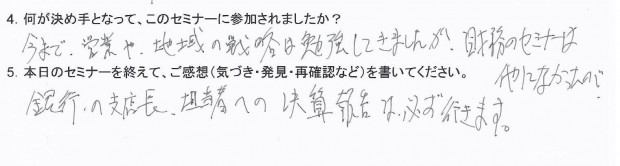 4. 何が決め手となって、このセミナーに参加されましたか？
今まで、営業や、地域の戦略は勉強してきましたが、財務のセミナーは
他になかったので
5. 本日のセミナーを終えて、ご感想（気づき・発見・再確認など）を書いてください。
銀行の支店長、担当者への決算報告は、必ず行きます。